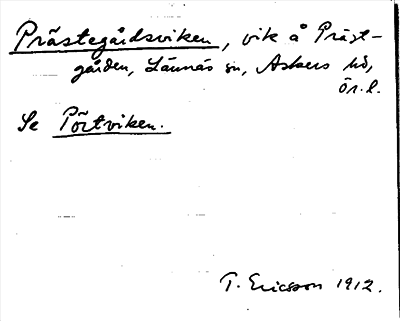 Prästegårdsviken, vik å Präst-
gården, Lännäs sn, Askers hd,
ör.l.
Se Pörtviken.
T. Ericsson 1912.